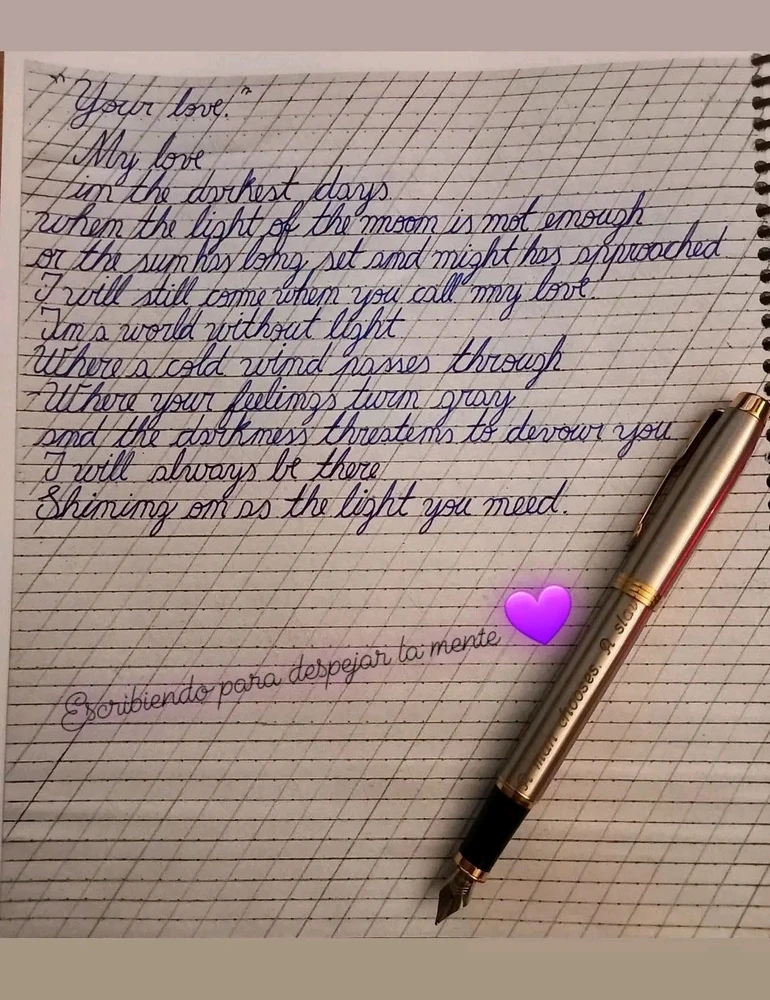 "Your love."
My love
in the darkest days
when the light of the moon is not enough
or the sun has long set and night has approached
I will still come when you call my love.
In a world without light
Where a cold wind passes through
Where your feelings turn gray
and the darkness threatens to devour you
I will always be there
Shining on as the light you need.
Escribiendo para despejar la mente
A man chooses. A slav